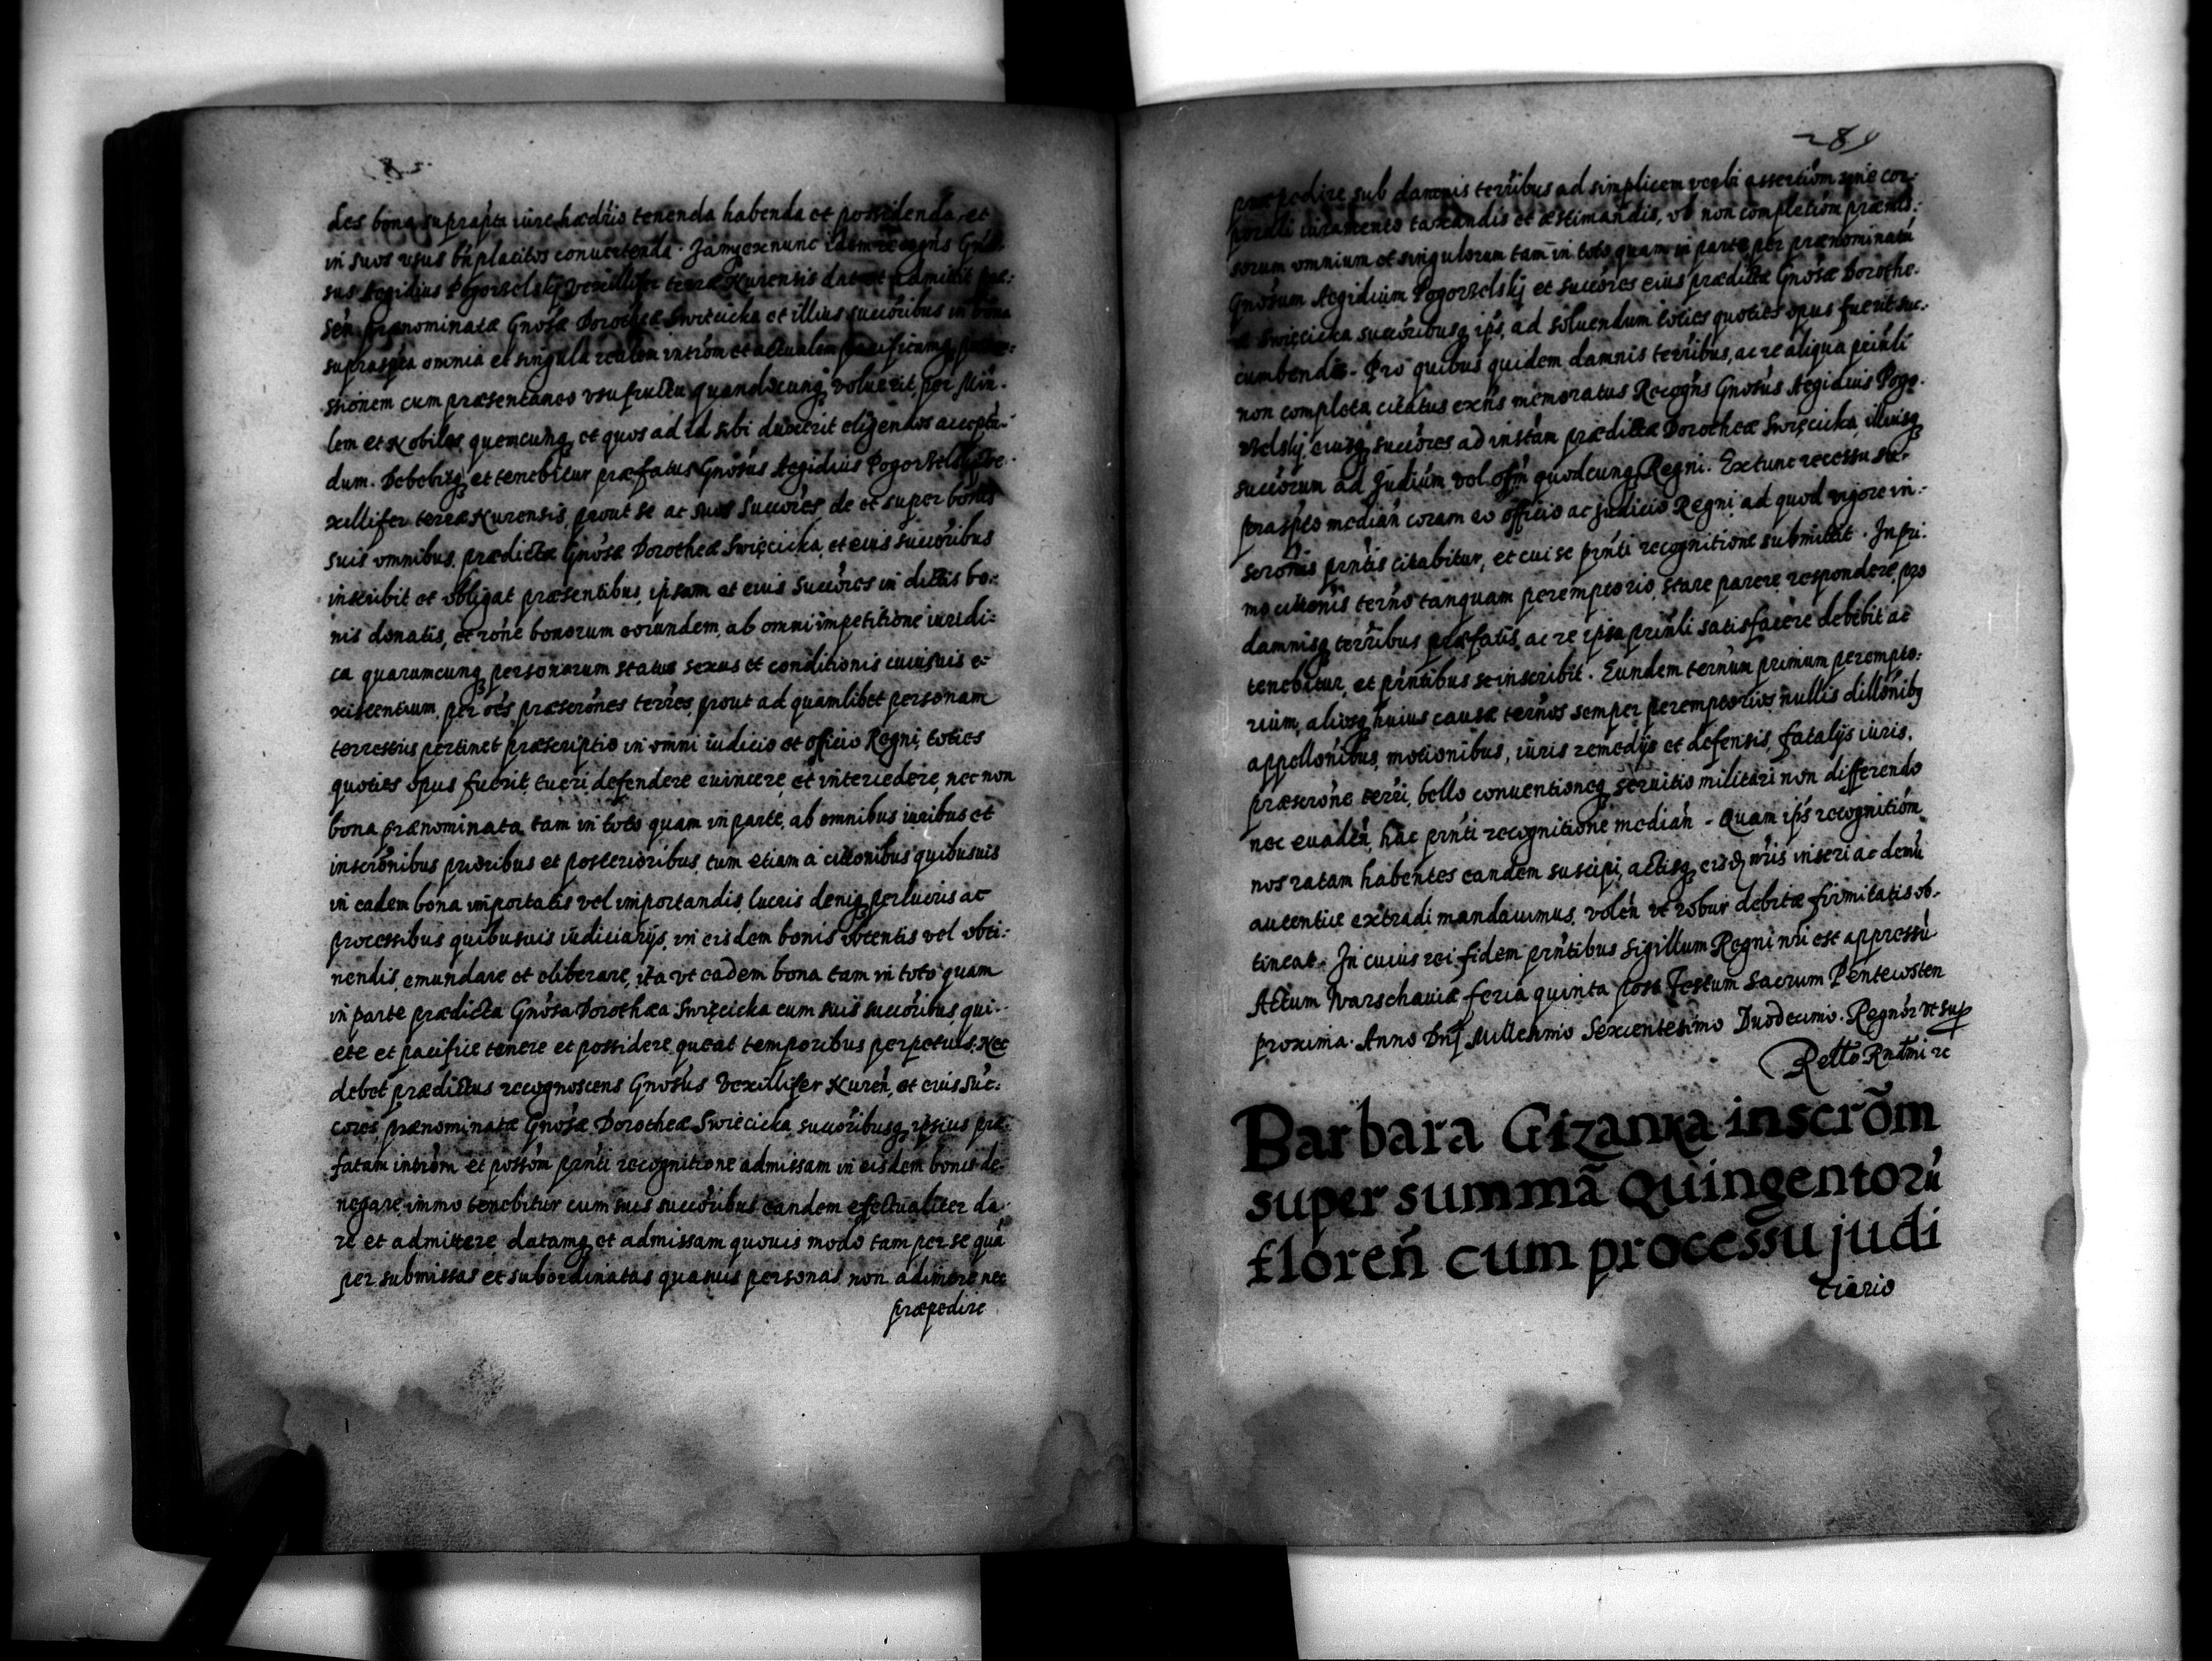 des bona suprapta iure hædrio tenenda habenda et possidenda, et
in suos usus bnplacitos conuertenda. Jamq ex nunc idem recogns Gno-
sus Aegidius Pogorzelskj Vexillifer terræ Nurensis dat et admittit præ:
sen prænominatæ Gnosæ Dorotheæ Swięcicka et illius succoribus in bona
supraspta omnia et singula realem introm et actualem pacificamq
ssionem cum præsentaneo vsufructu quandocunq voluerit, per Min-
lem et Nobiles, quemcunq et quos ad id sibi duxerit eligendos accepta-
dum. Debebitq et tenebitur præfatus Gnosus Aegidius Pogorzelskj Ve-
xillifer terræ Nurensis, prout se ac suos succores de et super bonis
suis omnibus, prædictæ Gnosæ Dorotheæ Swięcicka, et eius succoribus
inscribit et obligat præsentibus, ipsam et eius succores in dictis bo-
nis donatis, et rone bonorum eorundem, ab omni impetitione iuridi-
ca quarumcunq personarum status sexus et conditionis cuiusuis e-
xistentium, per oes præscrones terres, prout ad quamlibet personam
terrestris pertinet præscriptio in omni iudicio et officio Regni, toties
quoties opus fuerit, tueri defendere euincere et intercedere, nec non
bona prænominata tam in toto quam in parte, ab omnibus iuribus et
inscronibus prioribus et posterioribus, tum etiam a cittonibus quibusuis
in eadem bona importatis vel importandis, lucris deniq perlucris ac
processibus quibusuis iudiciarijs, in eisdem bonis obtentis vel obti:
nendis, emundare et eliberare, ita vt eadem bona tam in toto quam
in parte prædicta Gnosa Dorothæa Swięcicka cum suis succoribus, qui-
ete et pacifice tenere et possidere queat temporibus perpetuis. Nec
debet prædictus recognoscens Gnosus Vexillifer Nuren, et eius suc:
cores, prænominatæ Gnosæ Dorotheæ Swięcicka, succoribusq ipsius præ-
fatam introm et possom prnti recognitione admissam in eisdem bonis de-
negare, immo tenebitur cum suis succoribus eandem effectualiter da-
re et admittere, datamq et admissam quouis modo tam per se qua
per submissas et subordinatas quasuis personas non adimere nec
præpedire
289
præpedire sub damnis terribus ad simplicem verbi assertiom sine cor-
porali iuramento taxandis et æstimandis, ob non completiom præmis:
sorum omnium et singulorum tam in toto quam in parte per prænominatu
Gnosum Aegidium Pogorzelskj et succores eius prædictæ Gnosæ Dorothe-
æ Swięcicka succoribusq ips, ad soluendum toties quoties opus fuerit suc-
cumbendis. Pro quibus quidem damnis terribus, ac re aliqua prinli
non completa citatus extns memoratus Recogns Gnosus Aegidius Pogo-
rzelskj, eiusq succores ad instam prædictæ Dorotheæ Swięcicka, illiusq
succorum ad Judium vel offm quodcunq Regni. Extunc recessu su-
praspto median coram eo officio ac judicio Regni ad quod vigore in-
scronis prntis citabitur, et cui se prnti recognitione submittit. In pri-
mo cittonis terno tanquam peremptorio, stare parere respondere, pro
damnisq terribus præfatis, ac re ipsa prinli satisfacere debebit ac
tenebitur, et prntibus se inscribit. Eundem ternum primum perempto:
rium, aliosq huius causæ ternos semper peremptorios nullis dillonibq
appellonibus, motionibus, iuris remedijs et defensis, fatalijs iuris,
præscrone terri, bello conuentioneq seruitio militari non differendo
nec euaden, hac prnti recognitione median. Quam ips recognitiom
nos ratam habentes eandem suscipi, actisq eisdq nris inseri ac demu
autentice extradi mandauimus, volen vt robur debitæ firmitatis ob-
tineat. In cuius rei fidem prntibus Sigillum Regni nri est appressu
Actum Warschauiæ feria quinta post Festum Sacrum Pentecosten
proxima. Anno Dnj Millesimo Sexcentesimo Duodecimo. Regnor vt sup
Retto Rndmi rc
Barbara Gizanka inscrõm
super summã Quingentorũ
floreñ cum processu judi
ciario